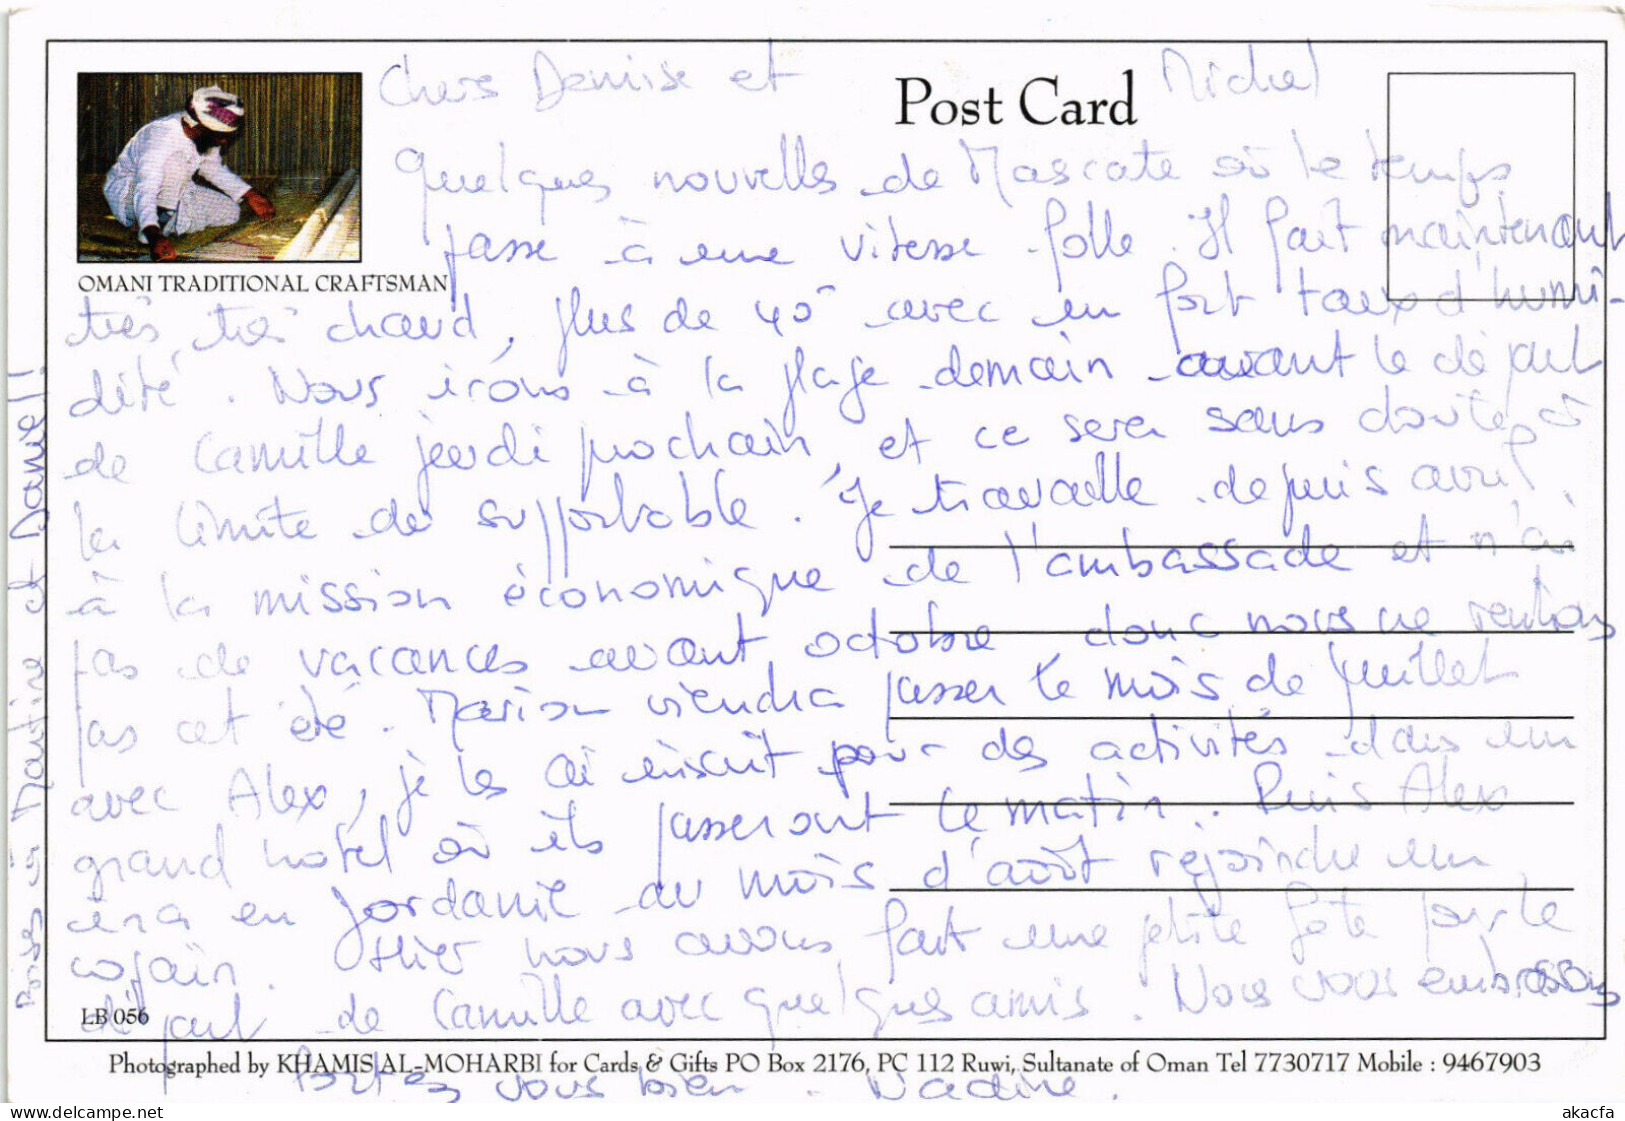 Chers Denise et Michel
Post Card
Quelques nouvelles de Mascate où le temps
passe à une vitesse folle. Il fait maintenant
OMANI TRADITIONAL CRAFTSMAN
très, très chaud, plus de 40° avec un fort taux d'humi-
dité. Nous irons à la plage demain avant le départ
de Camille jeudi prochain, et ce sera sans doute à
la limite du supportable. Je travaille depuis avril
à la mission économique de l'ambassade et n'ai
pas de vacances avant octobre, donc nous ne rentrons
pas cet été. Marion viendra passer le mois de juillet
avec Alex, je les ai inscrit pour des activités dans un
grand hôtel où ils passeront le matin. Puis Alex
ira en Jordanie au mois d'août rejoindre un
copain. Hier nous avons fait une petite fête pour le
départ de Camille avec quelques amis. Nous vous embrassons
LB 056
Photographed by KHAMIS AL-MOHARBI for Cards & Gifts PO Box 2176, PC 112 Ruwi, Sultanate of Oman Tel 7730717 Mobile : 9467903
Portez vous bien. Nadine.
Bises à Martine et Daniel!
akacfa